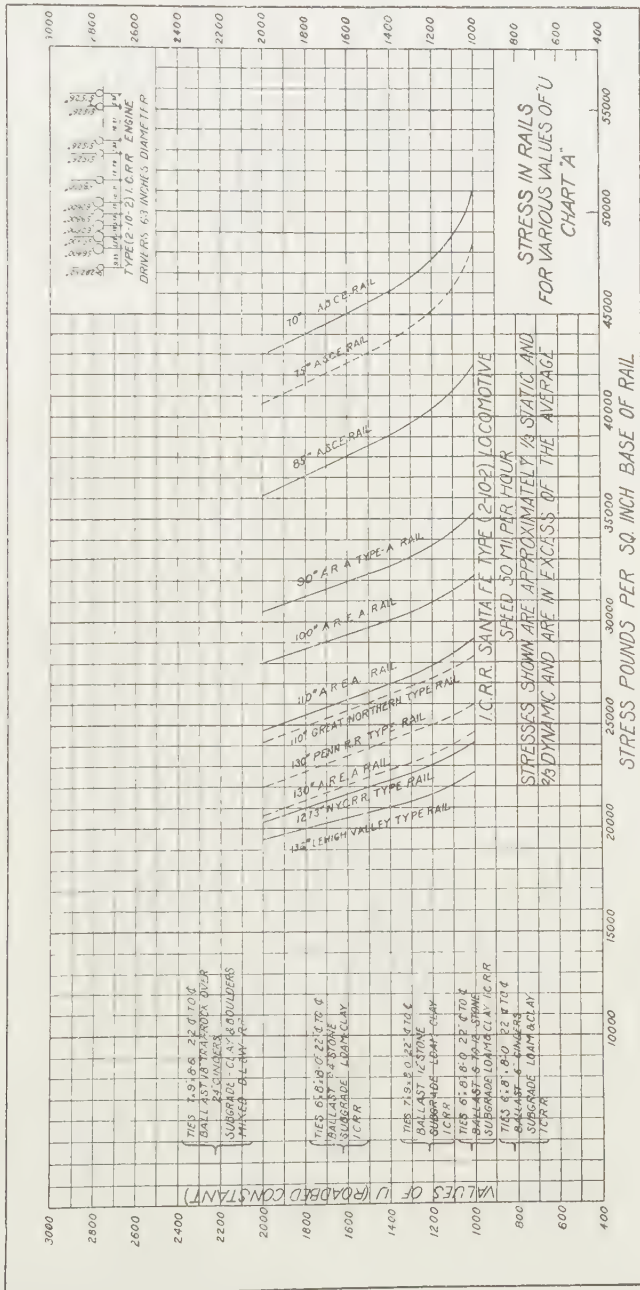 3000
2800
2600
2400
2200
2000
1800
1600
1400
1200
1000
800
600
400
.925.5
.925.5
.925.5
.925.5
TYPE (2-10-2) I.C.R.R ENGINE
DRIVERS 63 INCHES DIAMETER
70# A.S.C.E. RAIL
75# A.S.C.E. RAIL
85# A.S.C.E. RAIL
90# A.R.A TYPE-A RAIL
100# A.R.E.A. RAIL
110# A.R.E.A. RAIL
110# GREAT NORTHERN TYPE RAIL
130# PENN R.R TYPE RAIL
130# A.R.E.A RAIL
127.3# N.Y.C.R.R. TYPE RAIL
136# LEHIGH VALLEY TYPE RAIL
I.C.R.R. SANTA FE TYPE (2-10-2) LOCOMOTIVE
SPEED 50 MI. PER HOUR
STRESSES SHOWN ARE APPROXIMATELY ⅓ STATIC AND
⅔ DYNAMIC AND ARE IN EXCESS OF THE AVERAGE
STRESS IN RAILS
FOR VARIOUS VALUES OF "U
CHART "A"
TIES 7.9.8-6 22 ¢ TO ¢
BALLAST 18 TRAPROCK OVER
24" CINDERS
SUBGRADE : CLAY & BOULDERS
MIXED D-L-&-W R-R
TIES 6.8.8-0 22 ¢ TO ¢
BALLAST 24 STONE
SUBGRADE LOAM & CLAY
I C R R
TIES 7.9.8.0 22 ¢ TO ¢
BALLAST 12 STONE
SUBGRADE LOAM-CLAY
I C R R
TIES 6.8.8-0 22 ¢ TO ¢
BALLAST 6 TO 12 STONE
SUBGRADE LOAM & CLAY I C. R. R
TIES 6.8.8-0 22 ¢ TO ¢
BALLAST 6 CINDERS
SUBGRADE LOAM & CLAY
I C R R
VALUES OF U (ROADBED CONSTANT)
3000
2800
2600
2400
2200
2000
1800
1600
1400
1200
1000
800
600
400
10000
15000
20000
25000
30000
35000
40000
45000
50000
55000
STRESS POUNDS PER SQ. INCH BASE OF RAIL